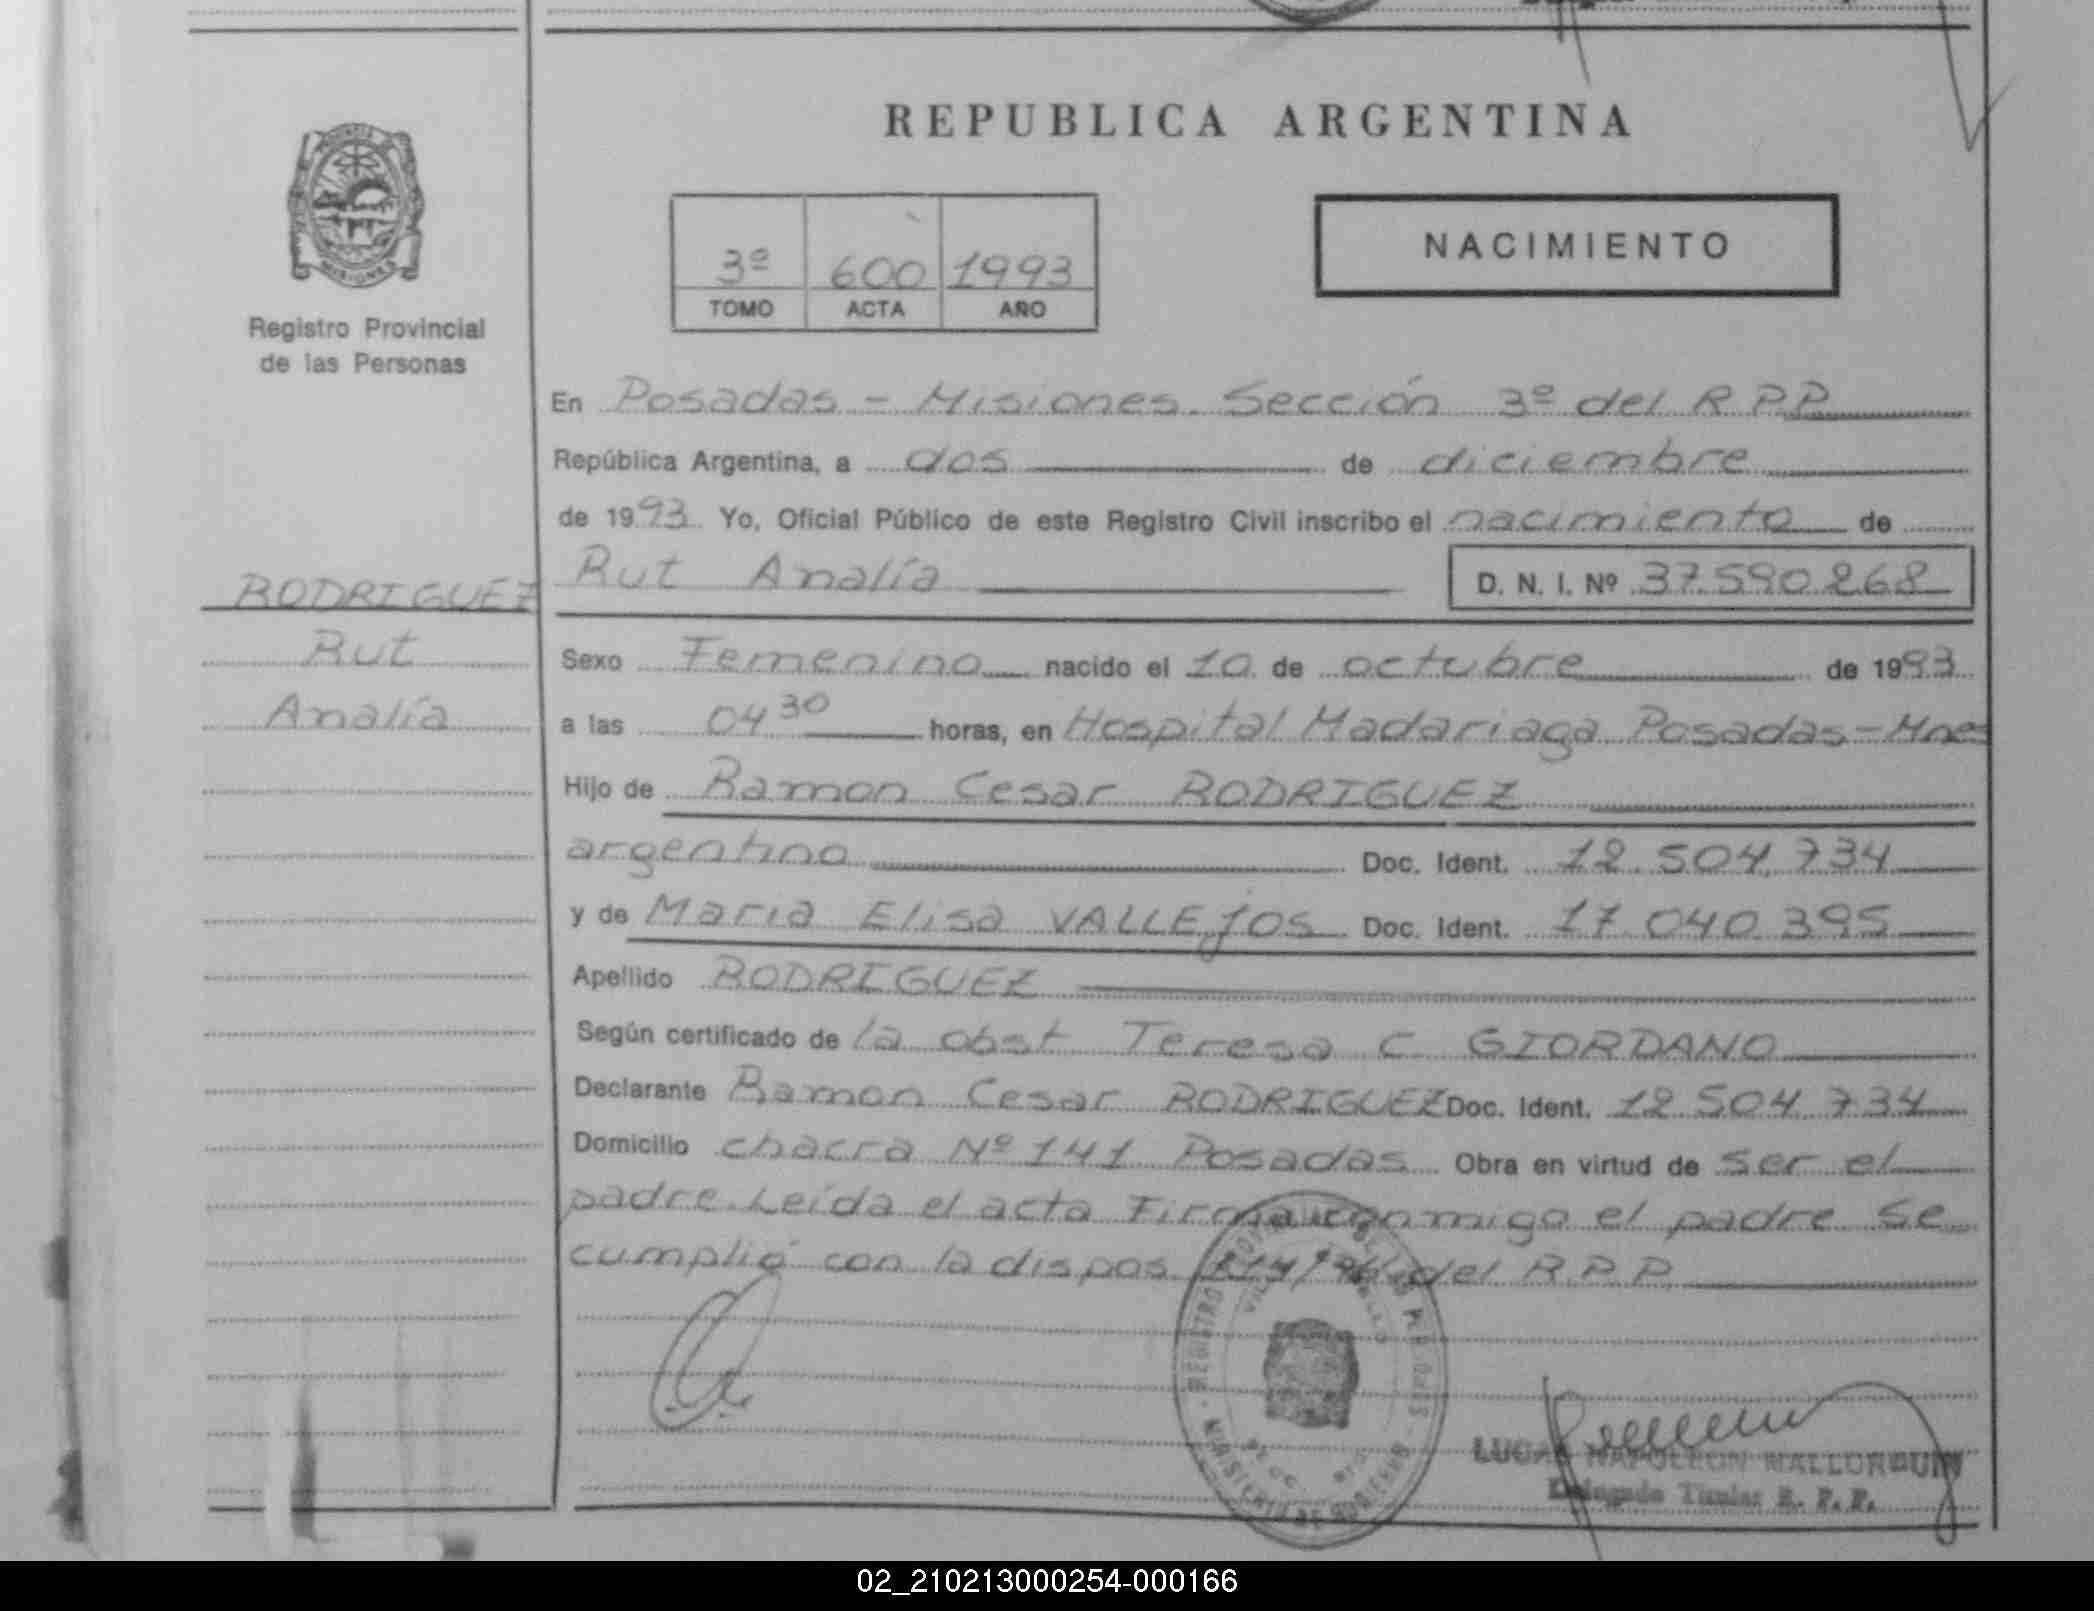 REPUBLICA ARGENTINA
MISIONES
Registro Provincial
de las Personas
3º 600 1993
TOMO ACTA AÑO
NACIMIENTO
En Posadas - Misiones. Sección 3º del R P P
República Argentina, a dos de diciembre
de 1993. Yo, Oficial Público de este Registro Civil inscribo el nacimiento de
RODRIGUEZ
Rut
Analía
Rut Analía D. N. I. Nº 37.590.268
Sexo Femenino nacido el 10 de octubre de 1993
a las 04 30 horas, en Hospital Madariaga Posadas - Mnes
Hijo de Ramon Cesar RODRIGUEZ
argentino Doc. Ident. 12.504.734
y de Maria Elisa VALLEJOS Doc. Ident. 17.040.395
Apellido RODRIGUEZ
Según certificado de la obst Teresa C GIORDANO
Declarante Ramon Cesar RODRIGUEZ Doc. Ident. 12 504 734
Domicilio chacra Nº 141 Posadas Obra en virtud de ser el
padre. Leída el acta Firma conmigo el padre Se
cumplió con la dispos del R P P
LUCAS NAPOLEON MALLORQUIN
Delegado Titular R. P. P.
02_210213000254-000166